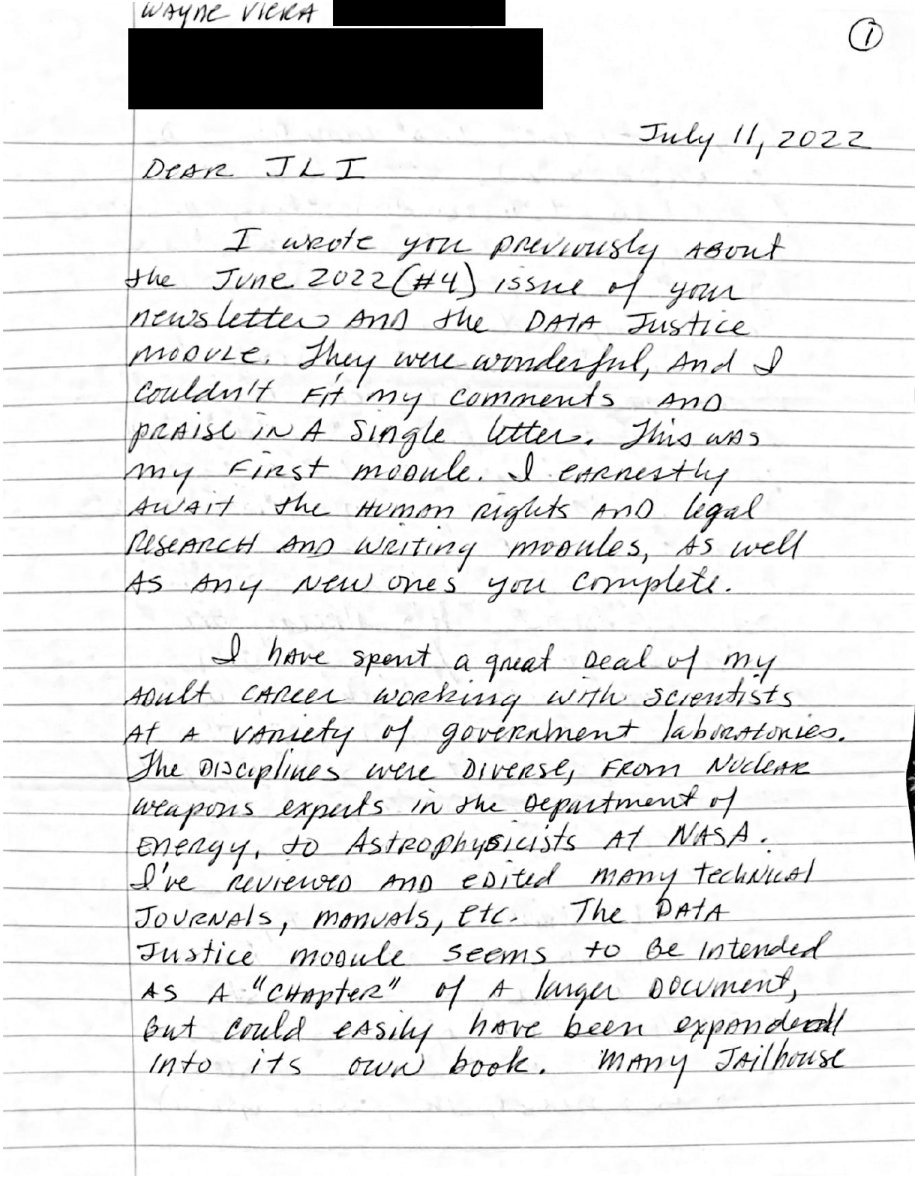 WAYNE VIERA
1
July 11, 2022
DEAR JLI
I wrote you previously ABOUT
the June 2022 (#4) issue of your
newsletter AND the DATA Justice
MODULE. They were wonderful, And I
couldn't Fit my comments AND
PRAISE IN A single letter. This WAS
my First module. I EARNESTLY
AWAIT the HUMAN Rights AND legal
RESEARCH AND WRITING modules, AS well
AS Any NEW ones you complete.
I HAVE spent a great DEAL of my
ADULT CAREER WORKING WITH SCIENTISTS
AT A VARIETY of government laboratories.
The DISCIPLINES were DIVERSE, FROM NUCLEAR
weapons experts in the DEPARTMENT of
ENERGY, to ASTROPHYSICISTS AT NASA.
I've REVIEWED AND EDITED MANY TECHNICAl
JOURNAls, MANUAls, Etc. The DATA
Justice module seems to BE Intended
AS A "CHAPTER" of A larger DOCUMENT,
But could easily have been expanded
into its own book. MANY JAilhouse